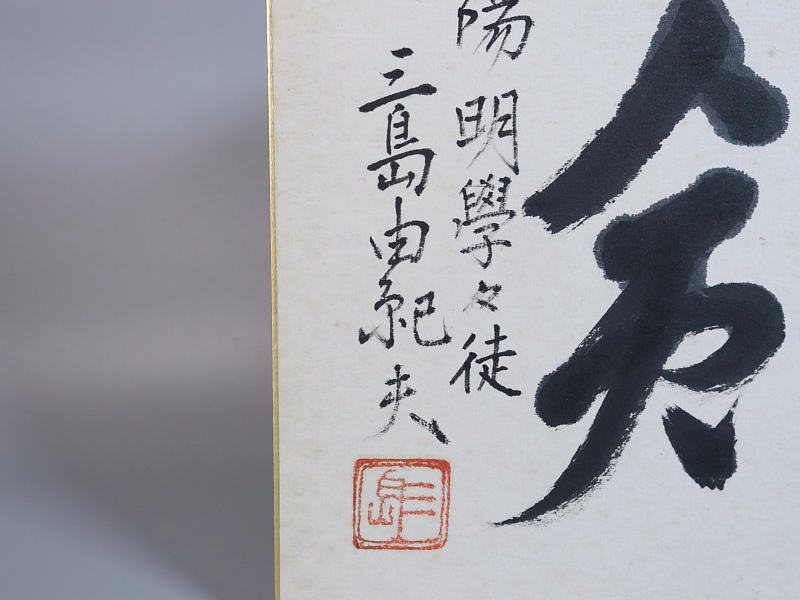 陽明學々徒
三島由紀夫